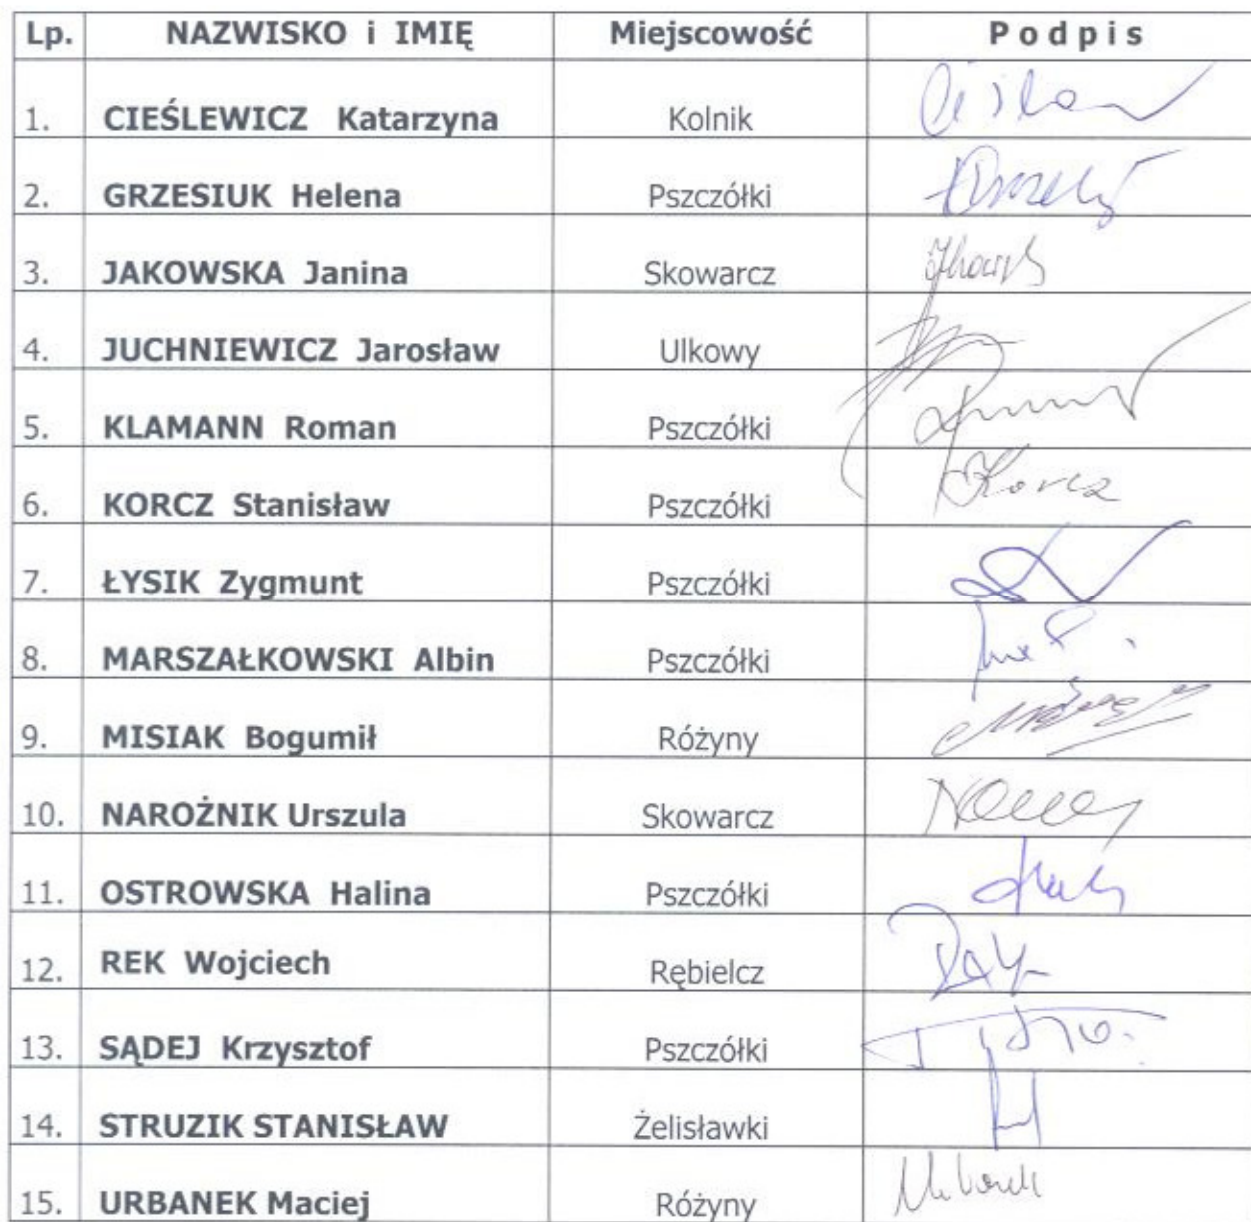 Lp. NAZWISKO i IMIĘ Miejscowość Podpis
1. CIEŚLEWICZ Katarzyna Kolnik
2. GRZESIUK Helena Pszczółki
3. JAKOWSKA Janina Skowarcz
4. JUCHNIEWICZ Jarosław Ulkowy
5. KLAMANN Roman Pszczółki
6. KORCZ Stanisław Pszczółki Korcz
7. ŁYSIK Zygmunt Pszczółki
8. MARSZAŁKOWSKI Albin Pszczółki
9. MISIAK Bogumił Różyny
10. NAROŻNIK Urszula Skowarcz
11. OSTROWSKA Halina Pszczółki
12. REK Wojciech Rębielcz
13. SĄDEJ Krzysztof Pszczółki
14. STRUZIK STANISŁAW Żelisławki
15. URBANEK Maciej Różyny